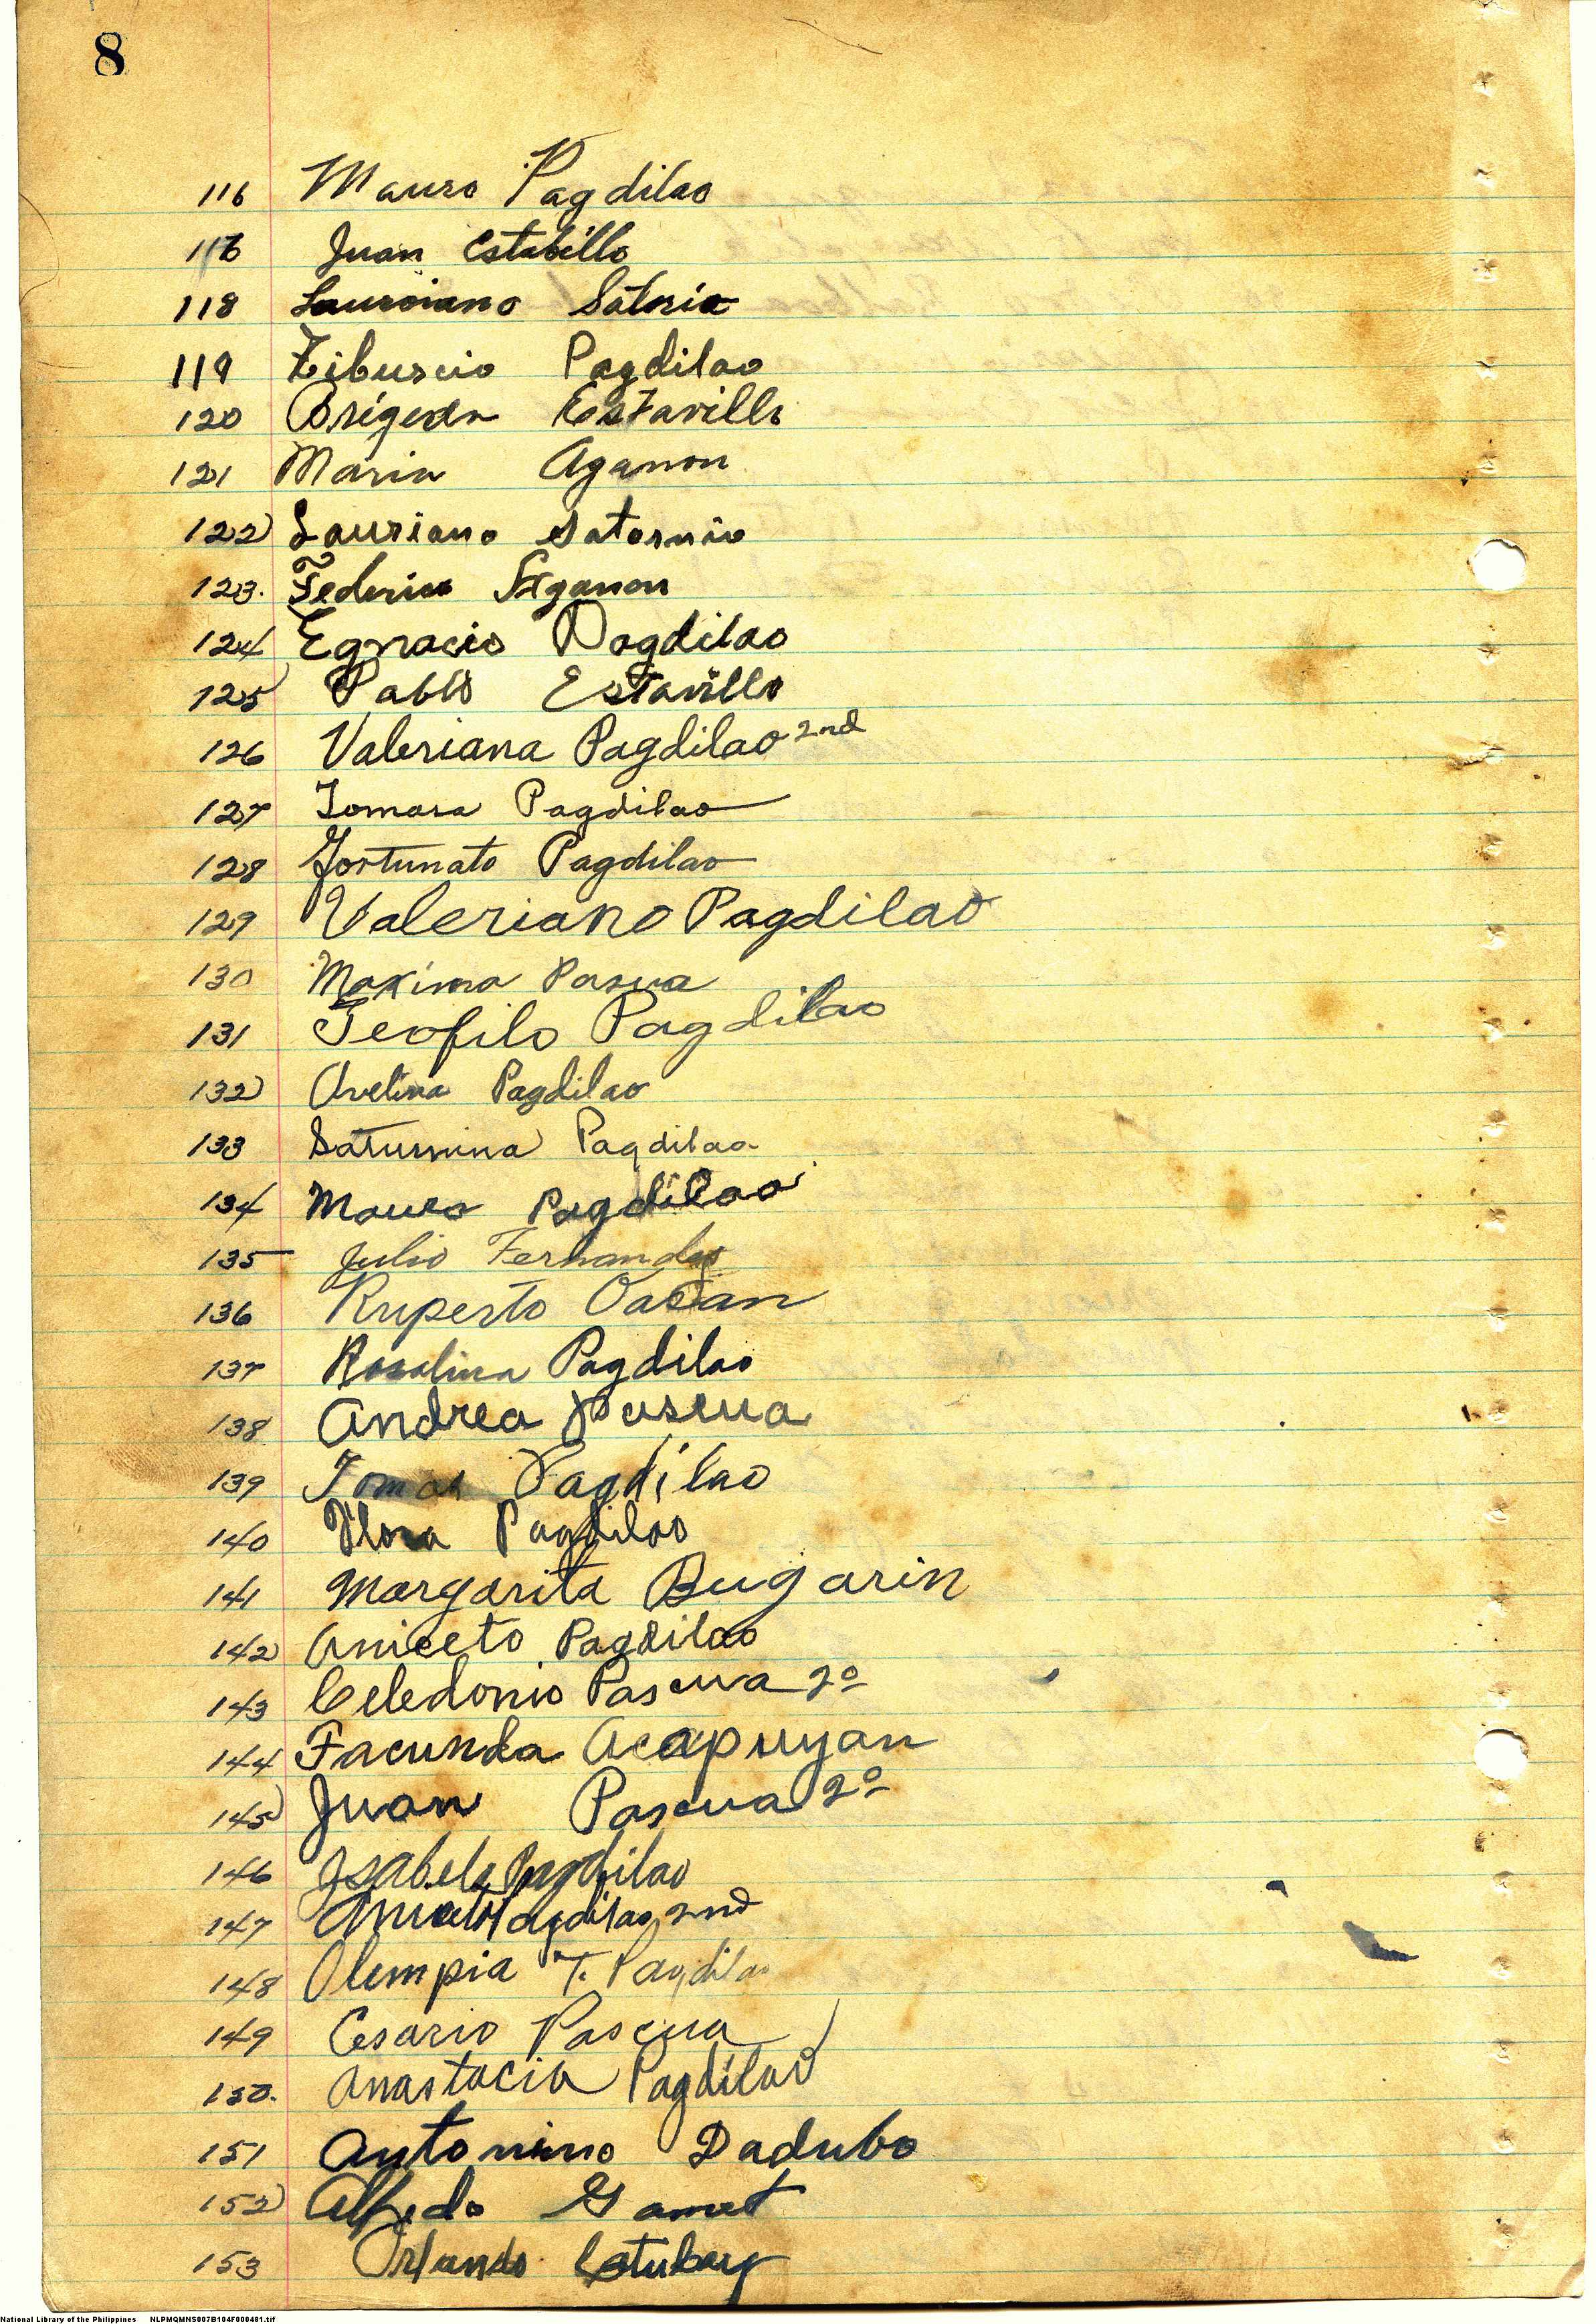 8
116 Mauro Pagdilao
116 Juan Estabillo
118 Laureiano Satnia
119 Tiburcio Pagdilao
120 Brigeda Estavillo
121 Maria Aganon
122 Lauriano Satornio
123. Federico Aganon
124 Egnacio Pagdilao
125 Pablo Estavillo
126 Valeriana Pagdilao 2nd
127 Tomasa Pagdilao
128 Fortunato Pagdilao
129 Valeriano Pagdilao
130 Maxima Pascua
131 Teofilo Pagdilao
132 Avelina Pagdilao
133 Saturnina Pagdilao
134 Mauro Pagdilao
135 Julio Fernandes
136 Ruperto
137 Rosalina Pagdilao
138 Andrea Pascua
139 Tomas Pagdilao
140 Flora Pagdilao
141 Margarita Bugarin
142 Aniceto Pagdilao
143 Celedonio Pascua 2º
144 Facunda Acapuyan
145 Juan Pascua 2º
146 Isabelo Pagdilao
147 Aniceto Pagdilao 2nd
148 Olempia T. Pagdilao
149 Cesario Pascua
150. Anastacia Pagdilao
151 Antonino Dadubo
152 Alfredo Gamet
153 Orlando
National Library of the Philippines NLPMQMNS007B104F000481.tif